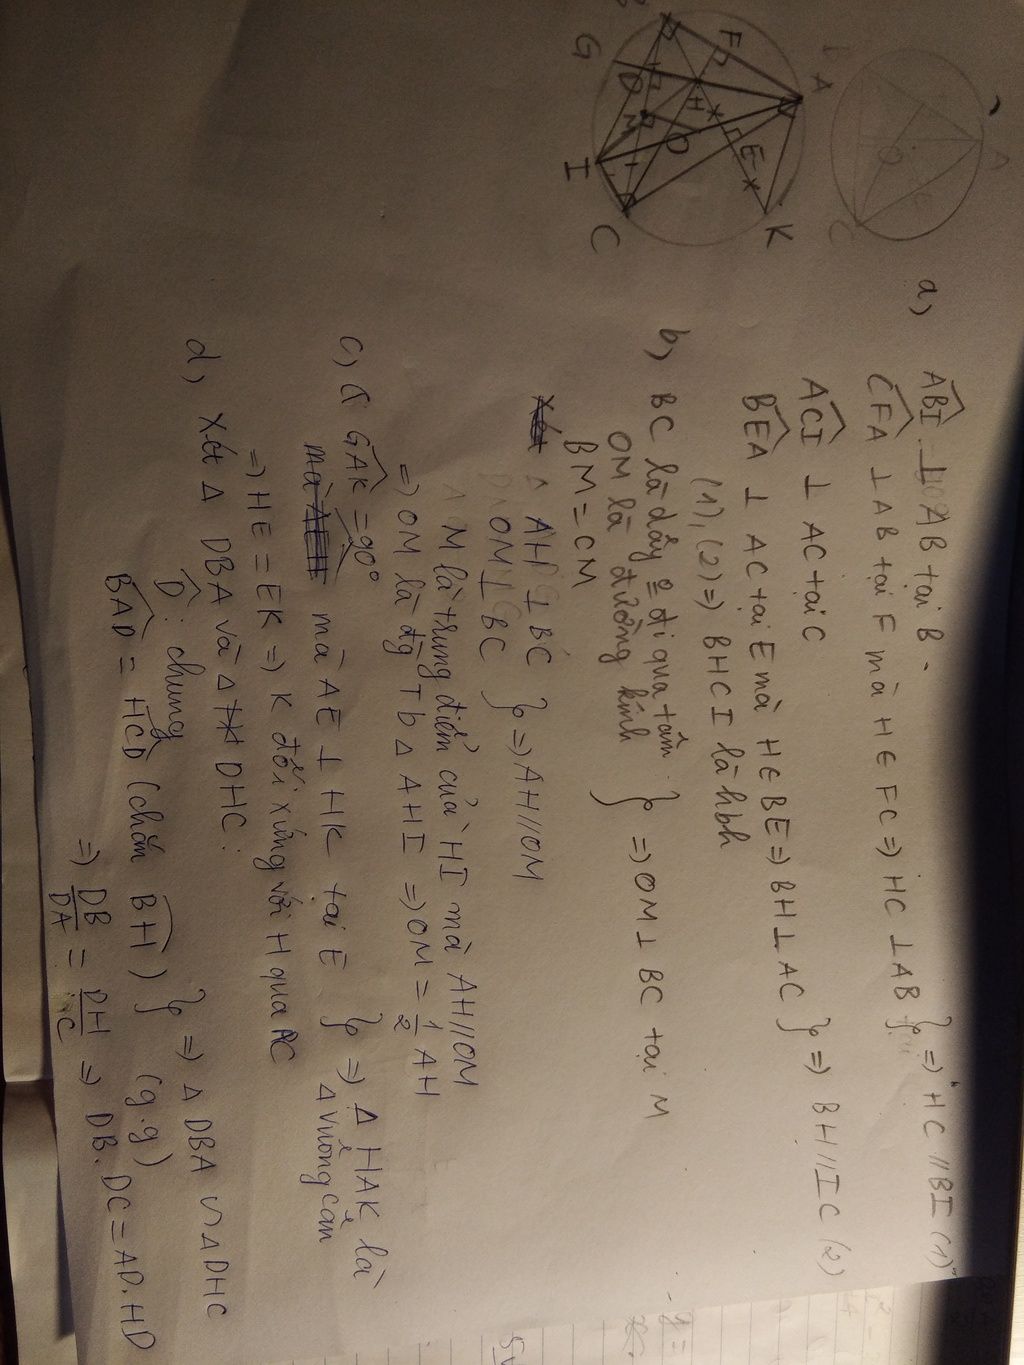 A
B
C
O
A
B
C
D
E
F
G
H
I
K
M
O
a, ABI ⊥ AB tại B
CFA ⊥ AB tại F mà H ∈ FC ⇒ HC ⊥ AB } ⇒ HC // BI (1)
ACI ⊥ AC tại C
BEA ⊥ AC tại E mà H ∈ BE ⇒ BH ⊥ AC } ⇒ BH // IC (2)
(1), (2) ⇒ BHCI là hbh
b, BC là dây đi qua tâm
OM là đường kính } ⇒ OM ⊥ BC tại M
BM = CM
AH ⊥ BC
OM ⊥ BC } ⇒ AH // OM
M là trung điểm của HI mà AH // OM
⇒ OM là đg Tb Δ AHI ⇒ OM = 1/2 AH
c, GAK = 90°
mà AE ⊥ HK tại E } ⇒ Δ HAK là Δ vuông cân
⇒ HE = EK ⇒ K đối xứng với H qua AC
d, Xét Δ DBA và Δ DHC:
D: chung
BAD = HCD (chắn BH) } ⇒ Δ DBA ∽ Δ DHC (g.g)
⇒ DB/DA = DH/DC ⇒ DB.DC = AD.HD